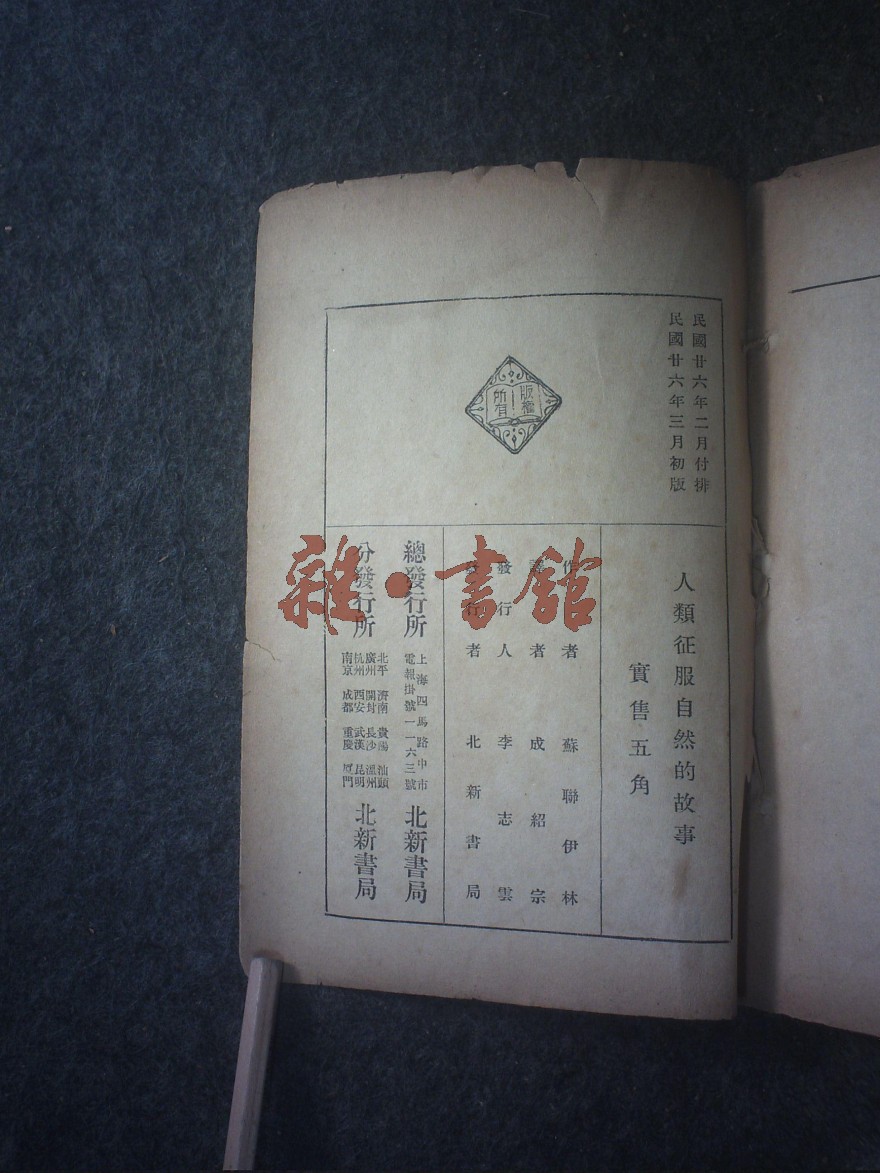 民國廿六年二月付排
民國廿六年三月初版
版權
所有
人類征服自然的故事
實售五角
作者 蘇聯伊林
譯者 成紹宗
發行人 李志雲
發行者 北新書局
總發行所 上海四馬路中市 電報掛號一一六三號 北新書局
分發行所 北平 濟南 貴陽 汕頭 廣州 開封 長沙 溫州 杭州 西安 武漢 昆明 南京 成都 重慶 厦門 北新書局
雜·書館